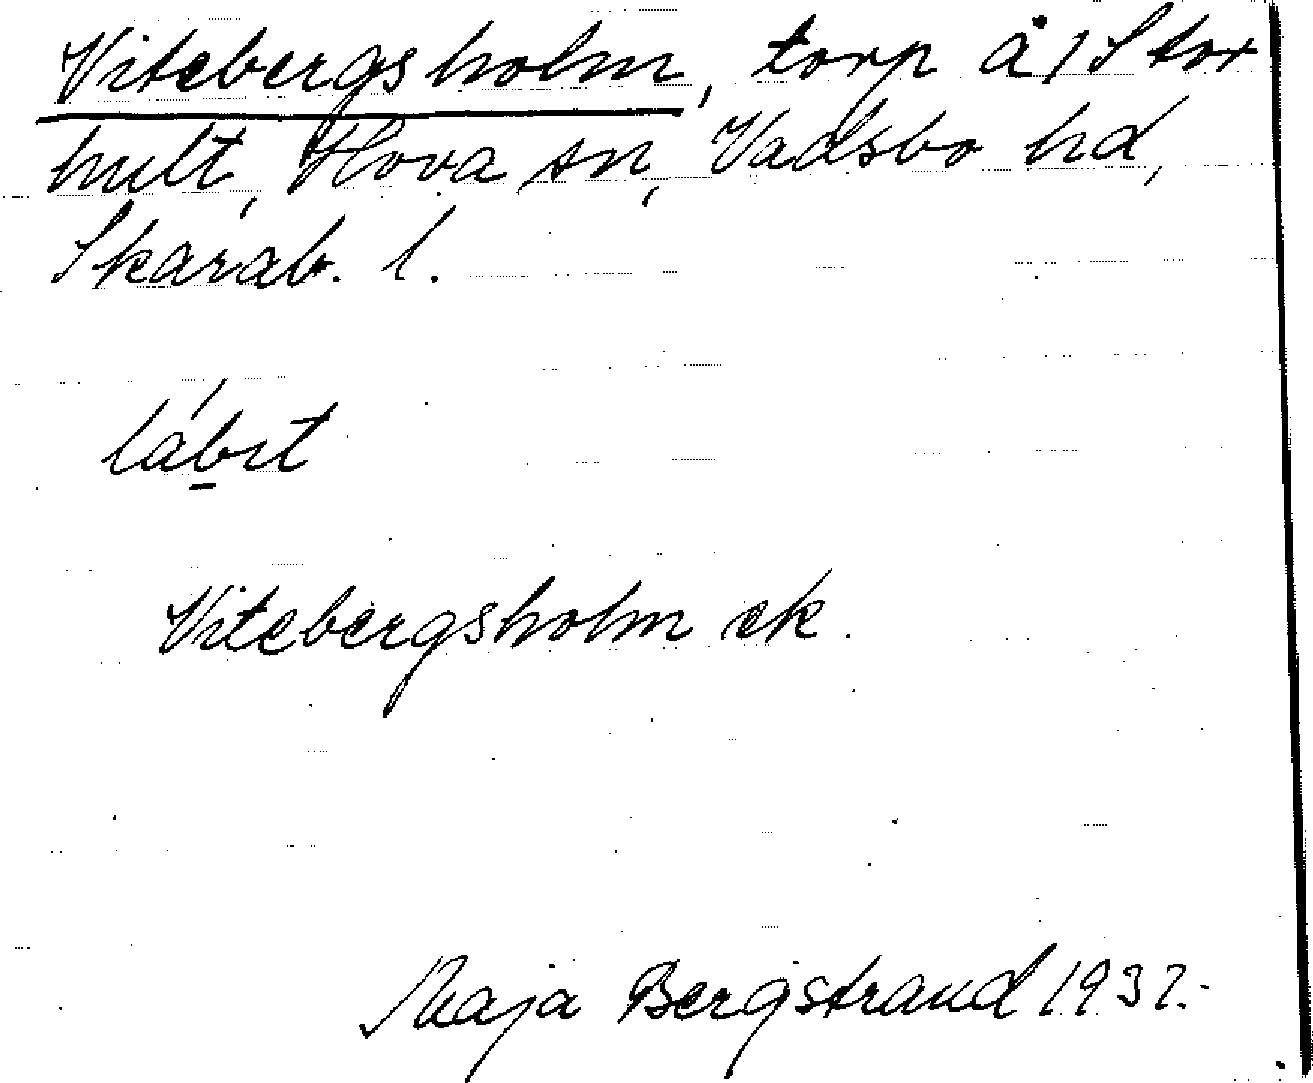 Vitebergsholm, torp å/Stor
hult, Hova sn, Vadsbo hd,
Skarab. l.
lábrt
Vitebergsholm ek.
Maja Bergstrand 1932.